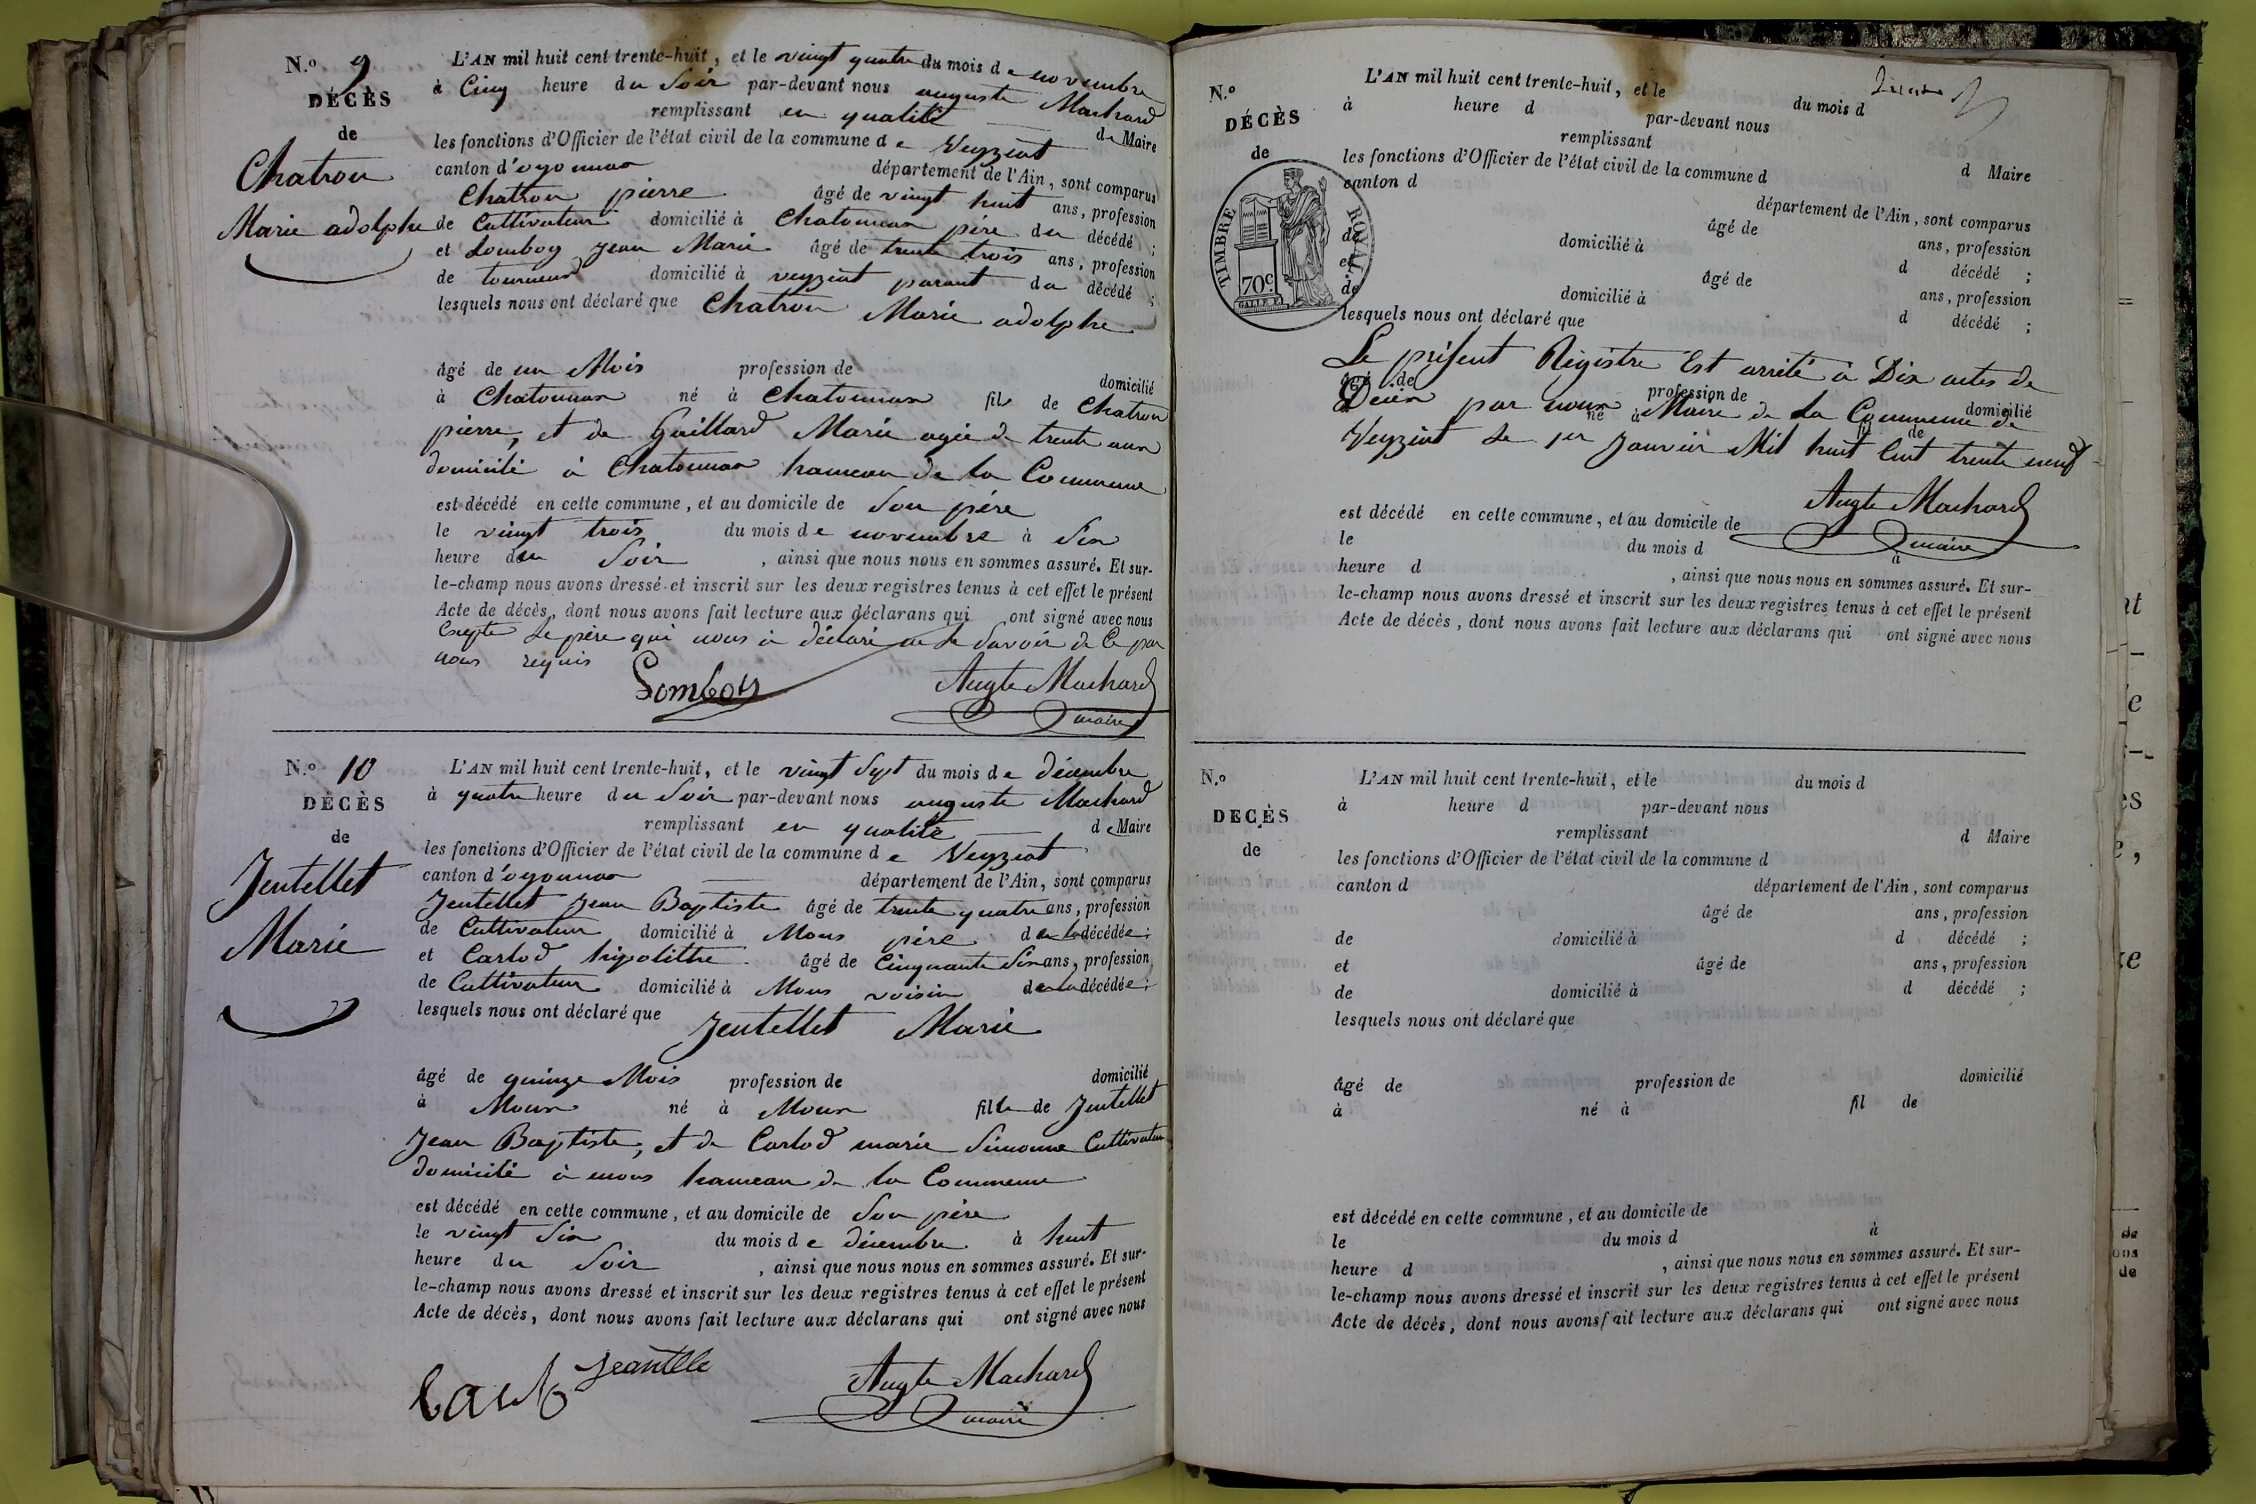 N.o 9
DÉCÈS
de
Chatron
Marie adolphe
L'AN mil huit cent trente-huit, et le vingt quatre du mois de novembre
à Cinq heure du Soir par-devant nous auguste Machard
remplissant en qualité de Maire
les fonctions d'Officier de l'état civil de la commune de Veyziat
canton d'oyonnax département de l'Ain, sont comparus
Chatron pierre âgé de vingt huit ans, profession
de Cultivateur domicilié à Chatonnax père du décédé ;
et Lomboy Jean Marie âgé de trente trois ans, profession
de tourneur domicilié à veyziat parent du décédé ;
lesquels nous ont déclaré que Chatron Marie adolphe
âgé de un Mois profession de domicilié
à Chatonnax né à Chatonnax fils de Chatron
pierre, et de Gaillard Marie agée de trente ans
domicilié à Chatonnax hameau de la Commune
est décédé en cette commune, et au domicile de Son père
le vingt trois du mois de novembre à Six
heure du Soir , ainsi que nous nous en sommes assuré. Et sur-
le-champ nous avons dressé et inscrit sur les deux registres tenus à cet effet le présent
Acte de décès, dont nous avons fait lecture aux déclarans qui ont signé avec nous
Excepté Le père qui nous à déclaré ne le Savoir de Ce par
nous requis
Lomboy Augte Machard
maire
N.o 10
DÉCÈS
de
Jentellet
Marie
L'AN mil huit cent trente-huit, et le vingt Sept du mois de décembre
à quatre heure du Soir par-devant nous auguste Machard
remplissant en qualité de Maire
les fonctions d'Officier de l'état civil de la commune de Veyziat
canton d'oyonnax département de l'Ain, sont comparus
Jentellet Jean Baptiste âgé de trente quatre ans, profession
de Cultivateur domicilié à Mons père de la décédée ;
et Carlod hipolithe âgé de Cinquante Six ans, profession
de Cultivateur domicilié à Mons voisin de la décédée ;
lesquels nous ont déclaré que Jentellet Marie
âgé de quinze Mois profession de domicilié
à Mons né à Mons fille de Jentellet
Jean Baptiste, et de Carlod marie Simonne Cultivateur
domicilié à mons hameau de la Commune
est décédé en cette commune, et au domicile de Son père
le vingt Six du mois de décembre à huit
heure du Soir , ainsi que nous nous en sommes assuré. Et sur-
le-champ nous avons dressé et inscrit sur les deux registres tenus à cet effet le présent
Acte de décès, dont nous avons fait lecture aux déclarans qui ont signé avec nous
Jeantele Augte Machard
maire
N.o
DÉCÈS
de
TIMBRE ROYAL
70c.
L'AN mil huit cent trente-huit, et le du mois d
à heure d par-devant nous
remplissant d Maire
les fonctions d'Officier de l'état civil de la commune d
canton d département de l'Ain, sont comparus
âgé de ans, profession
de domicilié à d décédé ;
et âgé de ans, profession
de domicilié à d décédé ;
lesquels nous ont déclaré que
Le présent Régistre Est arrêté à Dix actes de
âgé de profession de domicilié
Décès par nous Maire de la Commune de
à né à fil de
Veyziat Le 1er Janvier Mil huit Cent trente neuf
Augte Machard
maire
est décédé en cette commune, et au domicile de
le du mois d à
heure d , ainsi que nous nous en sommes assuré. Et sur-
le-champ nous avons dressé et inscrit sur les deux registres tenus à cet effet le présent
Acte de décès, dont nous avons fait lecture aux déclarans qui ont signé avec nous
N.o
DÉCÈS
de
L'AN mil huit cent trente-huit, et le du mois d
à heure d par-devant nous
remplissant d Maire
les fonctions d'Officier de l'état civil de la commune d
canton d département de l'Ain, sont comparus
âgé de ans, profession
de domicilié à d décédé ;
et âgé de ans, profession
de domicilié à d décédé ;
lesquels nous ont déclaré que
âgé de profession de domicilié
à né à fil de
est décédé en cette commune, et au domicile de
le du mois d à
heure d , ainsi que nous nous en sommes assuré. Et sur-
le-champ nous avons dressé et inscrit sur les deux registres tenus à cet effet le présent
Acte de décès, dont nous avons fait lecture aux déclarans qui ont signé avec nous